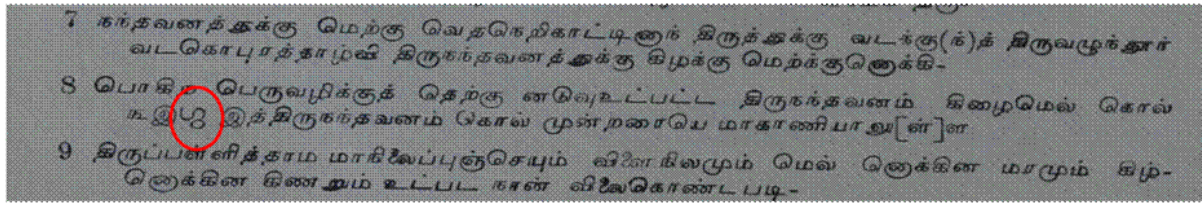 7 நந்தவனத்துக்கு மெற்கு வெதநெறிகாட்டினாந் திருத்துக்கு வடங்கு(ந்)த் திருவழுந்தூர்
வடகொபுரத்தாழ்வி திருநந்தவனத்துக்கு கிழக்கு மெற்க்குனொக்கி-
8 பொகிற பெருவழிக்குத் தெற்கு னடுவுஉட்பட்ட திருநந்தவனம் கிழைமெல் கொல்
இத்திருநந்தவனம் கொல் முன்றரையெ மாகாணியாலு[ள்]ள
9 திருப்பள்ளித்தாம மாநிலைப்புஞ்செயும் விளைநிலமும் மெல் னொக்கின மரமும் கிழ்-
னொக்கின கிணறும் உட்பட நான் விலைகொண்டபடி-